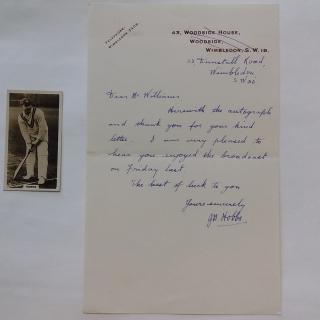 TELEPHONE,
WIMBLEDON
43, WOODSIDE HOUSE,
WOODSIDE,
WIMBLEDON, S.W. 19.
Road,
Wimbledon
Dear Mr Williams
Herewith the autograph
and thank you for your kind
letter. I was very pleased to
hear you enjoyed the broadcast
on Friday last.
The best of luck to you
Yours sincerely
JB Hobbs
HOBBS